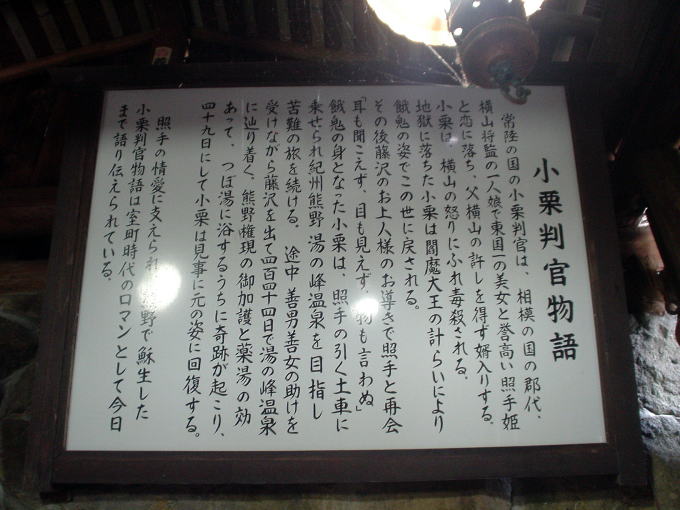 小栗判官物語
常陸の国の小栗判官は、相模の国の郡代、
横山将監の一人娘で東国一の美女と誉高い照手姫
と恋に落ち、父横山の許しを得ず婿入りする。
小栗は、横山の怒りにふれ毒殺される。
地獄に落ちた小栗は閻魔大王の計らいにより
餓鬼の姿でこの世に戻される。
その後藤沢のお上人様のお導きで照手と再会
「耳も聞こえず、目も見えず、物も言わぬ」
餓鬼の身となった小栗は、照手の引く土車に
乗せられ紀州熊野湯の峰温泉を目指し
苦難の旅を続ける。途中善男善女の助けを
受けながら藤沢を出て四百四十四日で湯の峰温泉
に辿り着く。熊野権現の御加護と薬湯の効
あって、つぼ湯に浴するうちに奇跡が起こり、
四十九日にして小栗は見事に元の姿に回復する。
照手の情愛に支えられ 野で蘇生した
小栗判官物語は室町時代のロマンとして今日
まで語り伝えられている。